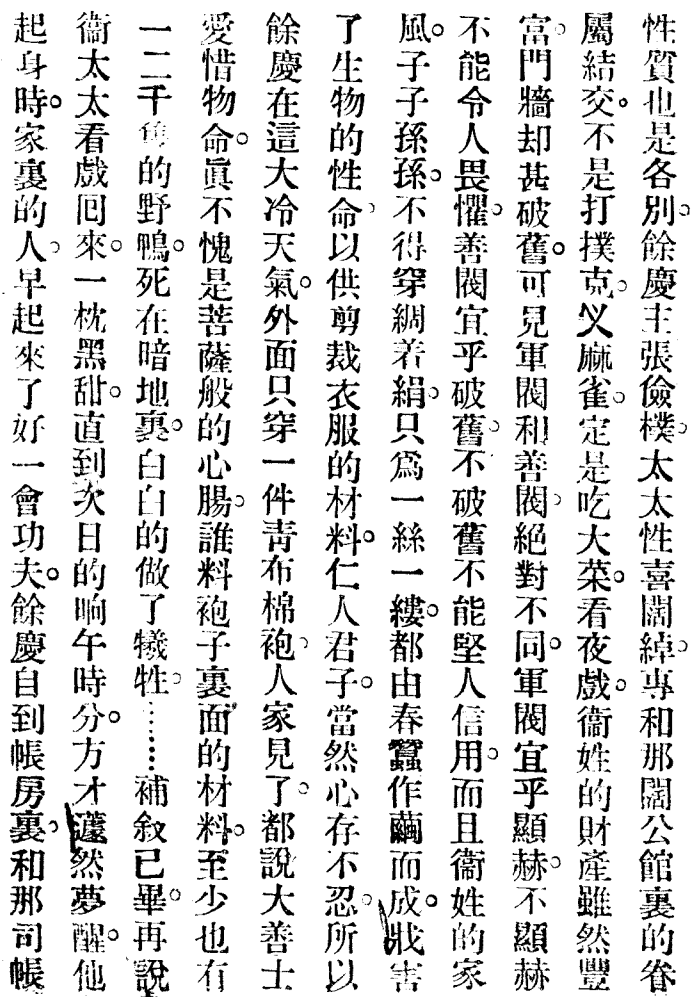 性質也是各別。餘慶主張儉樸。太太性喜闊綽。專和那闊公館裏的眷
屬結交。不是打撲克。义麻雀。定是吃大菜。看夜戲。衞姓的財產雖然豐
富。門牆却甚破舊。可見軍閥和善閥。絕對不同。軍閥宜乎顯赫。不顯赫
不能令人畏懼。善閥宜乎破舊。不破舊不能堅人信用。而且衞姓的家
風。子子孫孫。不得穿綢着絹。只爲一絲一縷。都由春蠶作繭而成。戕害
了生物的性命。以供剪裁衣服的材料。仁人君子。當然心存不忍。所以
餘慶在這大冷天氣。外面只穿一件靑布棉袍。人家見了。都說大善士
愛惜物命。眞不愧是菩薩般的心腸。誰料袍子裏面的材料。至少也有
一二千隻的野鴨。死在暗地裏。白白的做了犧牲。……補敘已畢。再說
衞太太看戲囘來。一枕黑甜。直到次日的晌午時分。方才蘧然夢醒。他
起身時。家裏的人。早起來了好一會功夫。餘慶自到帳房裏。和那司帳